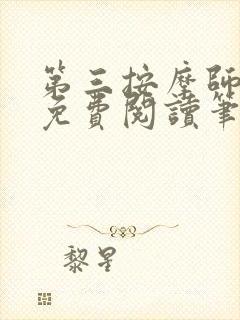 第三按摩師
免費閱讀筆
黎星